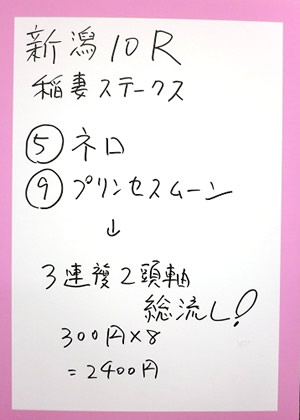 新潟10R
稲妻ステークス
⑤ネロ
⑨プリンセスムーン
↓
3連複2頭軸
総流し!
300円×8
=2400円